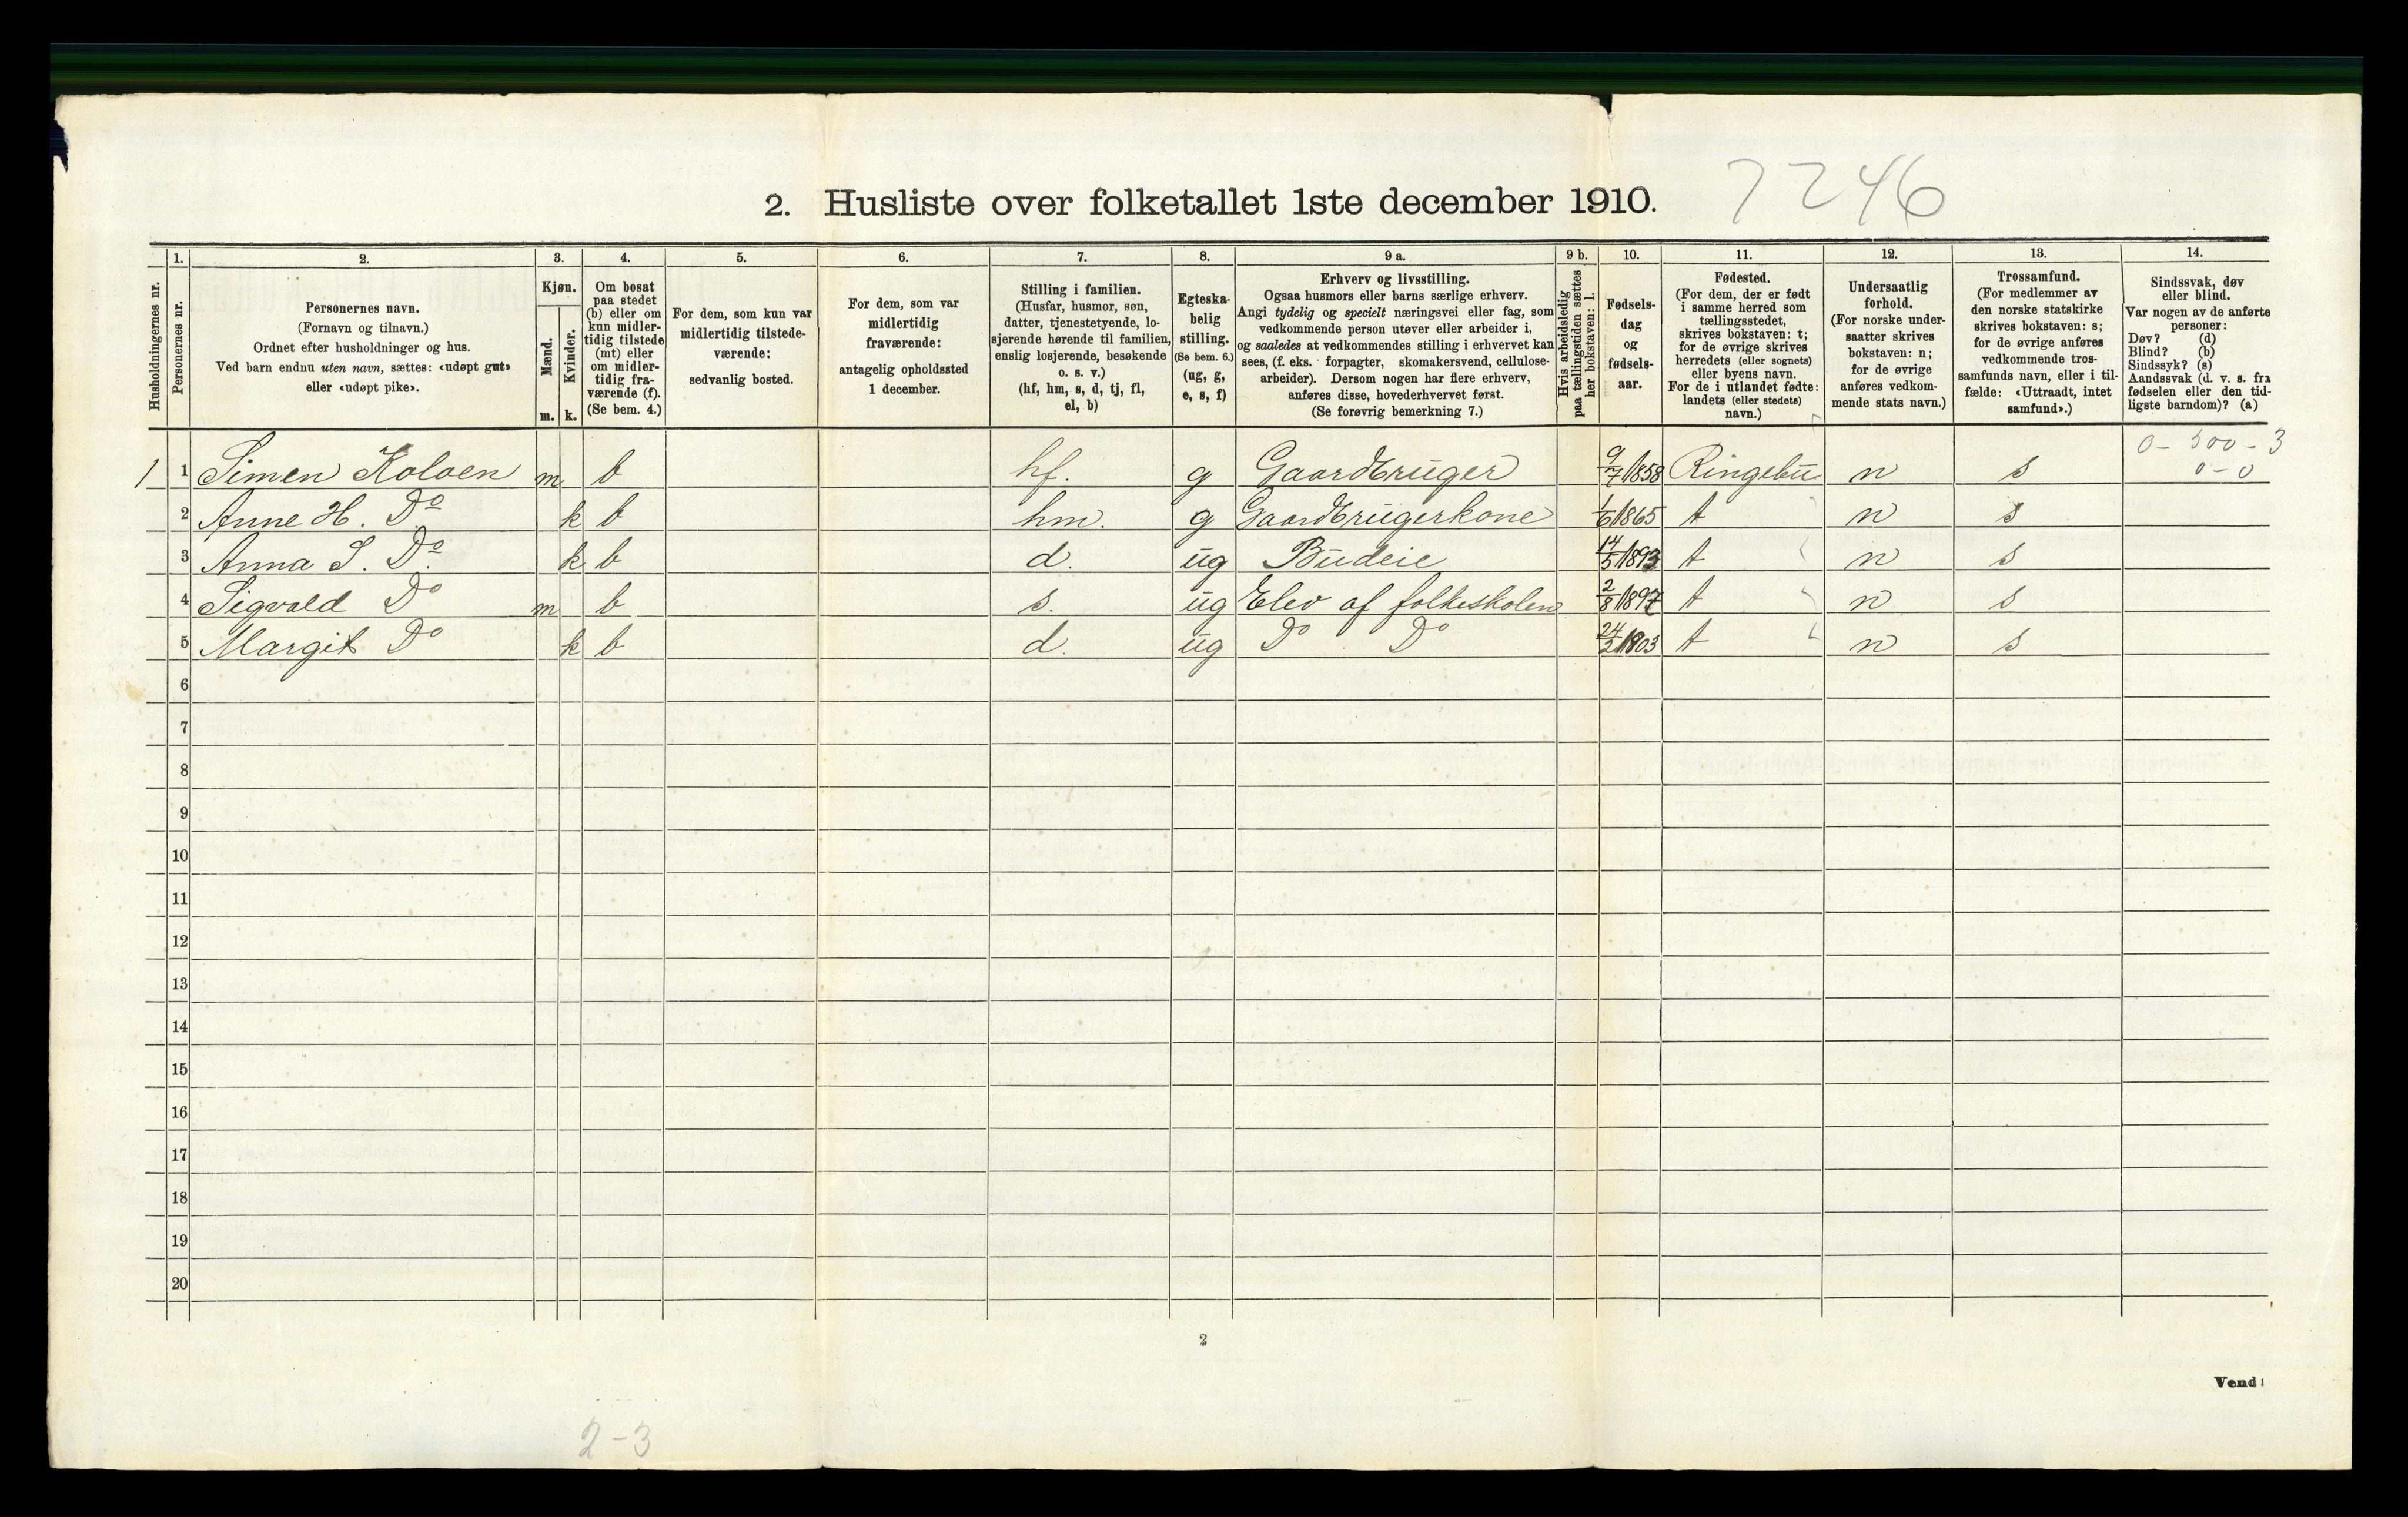 2. Husliste over folketallet 1ste december 1910. 7246
Husholdningernes nr.
1. Personernes nr.
2. Personernes navn. (Fornavn og tilnavn.) Ordnet efter husholdninger og hus. Ved barn endnu uten navn, sættes: «udøpt gut» eller «udøpt pike».
3. Kjøn. Mænd. m. Kvinder. k.
4. Om bosat paa stedet (b) eller om kun midlertidig tilstede (mt) eller om midlertidig fraværende (f). (Se bem. 4.)
5. For dem, som kun var midlertidig tilstedeværende: sedvanlig bosted.
6. For dem, som var midlertidig fraværende: antagelig opholdssted 1 december.
7. Stilling i familien. (Husfar, husmor, søn, datter, tjenestetyende, losjerende hørende til familien, enslig losjerende, besøkende o. s. v.) (hf, hm, s, d, tj, fl, el, b)
8. Egteskabelig stilling. (Se bem. 6.) (ug, g, e, s, f)
9 a. Erhverv og livsstilling. Ogsaa husmors eller barns særlige erhverv. Angi tydelig og specielt næringsvei eller fag, som vedkommende person utøver eller arbeider i, og saaledes at vedkommendes stilling i erhvervet kan sees, (f. eks. forpagter, skomakersvend, cellulosearbeider). Dersom nogen har flere erhverv, anføres disse, hovederhvervet først. (Se forøvrig bemerkning 7.)
9 b. Hvis arbeidsledig paa tællingstiden sættes her bokstaven: l.
10. Fødselsdag og fødselsaar.
11. Fødested. (For dem, der er født i samme herred som tællingsstedet, skrives bokstaven: t; for de øvrige skrives herredets (eller sognets) eller byens navn. For de i utlandet fødte: landets (eller stedets) navn.)
12. Undersaatlig forhold. (For norske undersaatter skrives bokstaven: n; for de øvrige anføres vedkommende stats navn.)
13. Trossamfund. (For medlemmer av den norske statskirke skrives bokstaven: s; for de øvrige anføres vedkommende trossamfunds navn, eller i tilfælde: «Uttraadt, intet samfund».)
14. Sindssvak, døv eller blind. Var nogen av de anførte personer: Døv? (d) Blind? (b) Sindssyk? (s) Aandssvak (d. v. s. fra fødselen eller den tidligste barndom)? (a)
0 - 500 - 3
1 1 Simen Koloen m b hf. g Gaardbruger 9/7 1858 Ringebu n s 0 - 0
2 Anne H. Do k b hm. g Gaardbrugerkone 1/6 1865 t n s
3 Anna S. Do k b d. ug Budeie 14/5 1893 t n s
4 Sigvald Do m b s. ug Elev af folkeskolen 2/8 1897 t n s
5 Margit Do k b d. ug Do Do 24/2 1903 t n s
6
7
8
9
10
11
12
13
14
15
16
17
18
19
20
2
Vend!
2-3